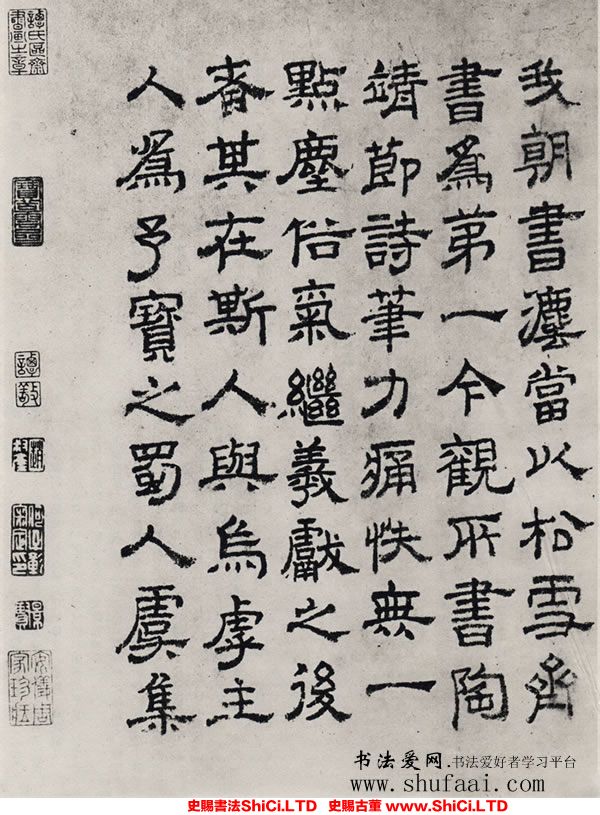 我朝書灋當以松雪齊
書爲第一今觀所書陶
靖節詩筆力痛快無一
點塵俗氣繼羲獻之後
者其在斯人與烏虖主
人爲予寶之蜀人虞集
譚氏區齋書畫之章
譚敬
安儀周家珍藏
书法爱网.书法爱好者学习平台
www.shufaai.com
史賜書法ShiCi.LTD 史賜古董 www.ShiCi.LTD